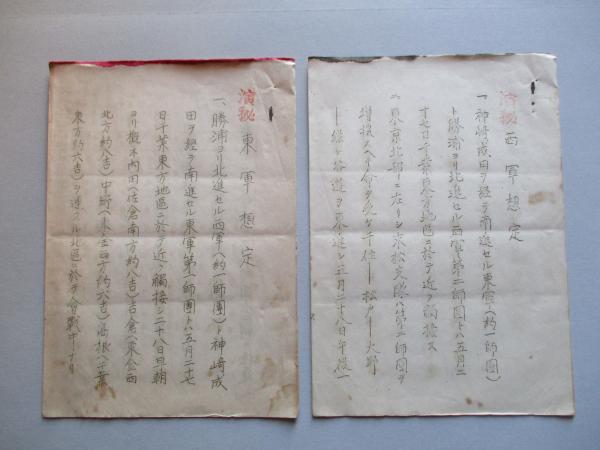 演秘
西軍想定
一、神崎成田ヲ経テ南進セル東軍(約一師團)
ト勝浦ヨリ北進セル西軍第二師團トハ五月二
十七日千葉東方地區ニ於テ近ク觸接ス
二、東京北部ニ在リシ末松支隊ハ第二師團ヲ
増援スヘキ命ヲ受ケ千住―松戸―大野
―鎌ヶ谷道ヲ東進シ五月二十八日午後一
演秘
東軍想定
一、勝浦ヨリ北進セル西軍(約一師團)ト神崎成
田ヲ経テ南進セル東軍第一師團トハ五月二十七
日千葉東方地區ニ於テ近ク觸接シ二十八日早朝
ヨリ根木内田(佐倉南方約八吉)吉倉(東金西
北方約八吉)中野(東金西方約六吉)高根(千葉
東方約六吉)ヲ連ヌル地區ニ於テ會戰中ナリ